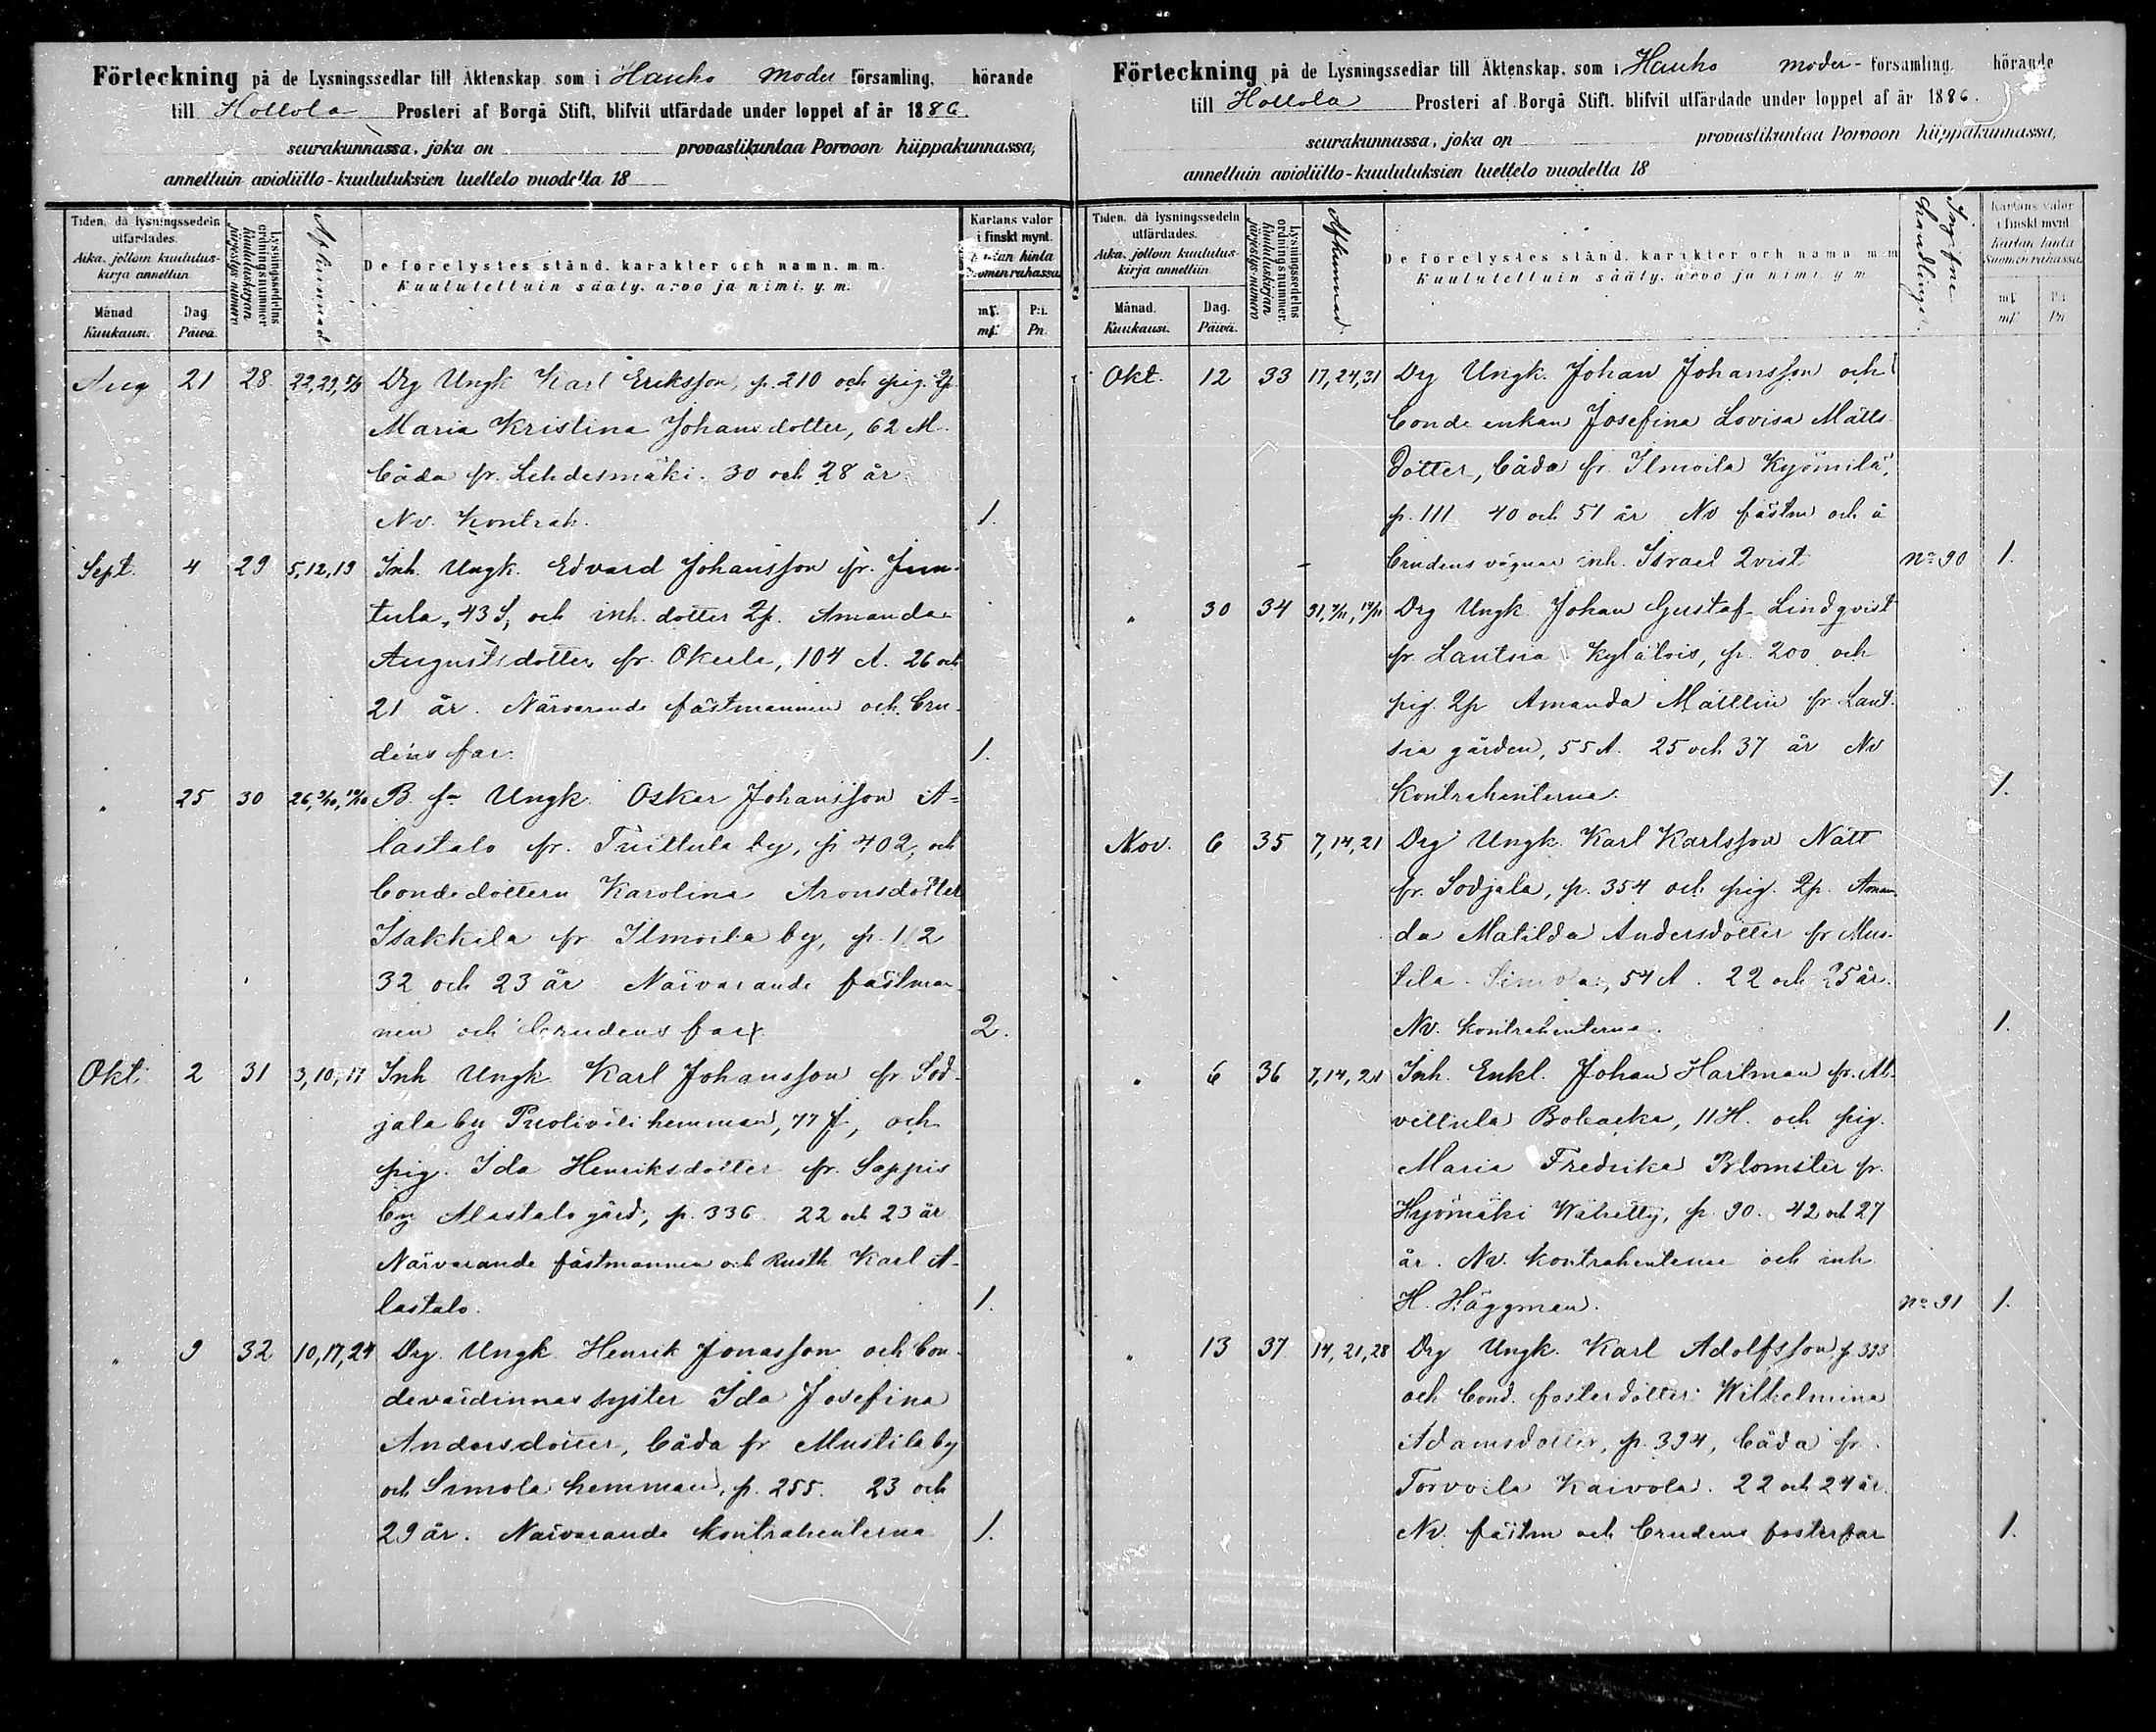 Förteckning på de Lysningssedlar till Äktenskap som i Hauho moder församling, hörande
till Hollola Prosteri af Borgå Stift, blifvit utfärdade under loppet af år 1886.
seurakunnassa, joka on provastikuntaa Porvoon hiippakunnassa,
annettuin avioliitto-kuulutuksien luettelo vuodelta 18
Tiden, då lysningssedeln utfärdades.
Aika, jolloin kuulutus-kirja annettiin
Månad. Kuukausi.
Dag. Päivä.
Lysningssedelns ordningsnummer
Kuulutuskirjan järjestys-numero
Afkunnad
De förelystes stånd, karakter och namn, m. m.
Kuulutettuin sääty, arvo ja nimi, y. m.
Kartans valör i finskt mynt.
Kartan hinta Suomen rahassa
mk. P:i.
mk. Pn.
Aug 21 28 22, 29, 5/9 Drg Ungk Karl Eriksson, p. 210 och pig. 2p
Maria Kristina Johansdotter, 62 M.
båda fr. Lehdesmäki. 30 och 28 år
Nv. Kontrah. 1.
Sept. 4 29 5, 12, 19 Inh. Ungk. Edvard Johansson fr. Jun-
tula, 43 S, och inh. dotter 2p. Amanda
Augustsdotter fr. Okerla, 104 A. 26 och
21 år. Närvarande fästmannen och bru-
dens far. 1.
" 25 30 26, 3/10, 10/10 B. sn Ungk. Oskar Johansson A-
lastalo fr. Tuittula by, p. 402, och
bondedottern Karolina Aronsdotter
Isakkila fr. Ilmoila by, p. 112
32 och 23 år Närvarande fästman-
nen och brudens far. 2.
Okt. 2 31 3, 10, 17 Inh Ungk Karl Johansson fr Sod-
jala by Puoliväli hemman, 77 f, och
pig. Ida Henriksdotter fr. Sappis
by Alastalo gård, p. 336 22 och 23 år
Närvarande fästmannen och Rusth Karl A-
lastalo. 1.
" 9 32 10, 17, 24 Drg. Ungk. Henrik Jonasson och bon-
devärdinnas syster Ida Josefina
Andersdotter, båda fr Mustila by
och Simola hemman, p. 255. 23 och
29 år. Närvarande kontrahenterna 1.
Förteckning på de Lysningssedlar till Äktenskap, som i Hauho moder-församling hörande
till Hollola Prosteri af Borgå Stift, blifvit utfärdade under loppet af år 1886.
seurakunnassa, joka on provastikuntaa Porvoon hiippakunnassa,
annettuin avioliitto-kuulutuksien luettelo vuodelta 18
Tiden, då lysningssedeln utfärdades.
Aika, jolloin kuulutus-kirja annettiin
Månad. Kuukausi.
Dag. Päivä.
Lysningssedelns ordningsnummer.
Kuulutuskirjan järjestys-numero
Afkunnad.
De förelystes stånd, karakter och namn m. m
Kuulutettuin sääty, arvo ja nimi, y. m
handlingar.
Kartans valör i finskt mynt
Kartan hinta Suomen rahassa
mk. P:i
mk. Pn
Okt. 12 33 17, 24, 31 Drg Ungk. Johan Johansson och
bonde enkan Josefina Lovisa Matts
dotter, båda fr Ilmoila Kyömilä,
p. 111 40 och 51 år Nv fästm och å
brudens vägnar inh. Israel Qvist No 90 1.
" 30 34 31, 7/11, 14/11 Drg Ungk Johan Gustaf Lindqvist
fr. Lautsia Kylätois, p. 200 och
pig 2p Amanda Mattlin fr. Laut-
sia gården, 55 A. 25 och 37 år Nv
Kontrahenterna. 1.
Nov. 6 35 7, 14, 21 Drg Ungk Karl Karlsson Nätt
fr. Sodjala, p. 354 och pig. 2p. Aman
da Matilda Andersdotter fr Mus-
tila Simola, 54 A. 22 och 25 år.
Nv. kontrahenterna. 1.
" 6 36 7, 14, 21 Inh. Enkl. Johan Hartman fr. Al-
vettula Bobacka, 11 H. och pig.
Maria Fredrika Blomster fr.
Hyömäki Wähätty, p. 90. 42 och 27
år. Nv. kontrahenterna och inh
H. Häggman. No 91 1.
" 13 37 14, 21, 28 Drg Ungk. Karl Adolfsson p. 393
och bond. fosterdotter Wilhelmina
Adamsdotter, p. 394, båda fr.
Torvoila Kaivola. 22 och 24 år.
Nv. fästm och brudens fosterfar 1.